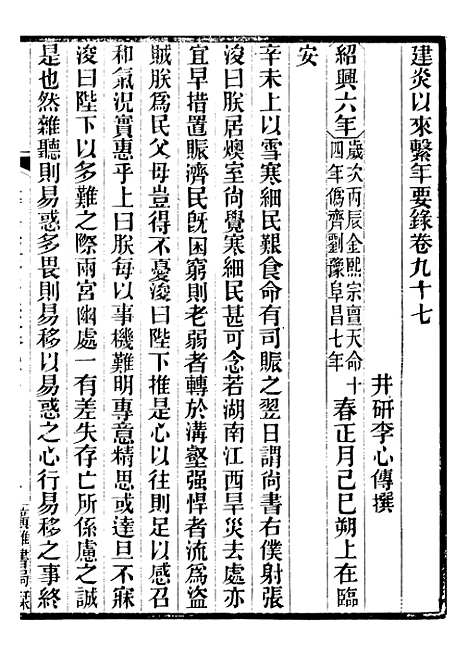 建炎以來繫年要錄卷九十七
井研李心傳撰
紹興六年歲次丙辰金熙宗亶天命十四年僞齊劉豫阜昌七年春正月己巳朔上在臨
安
辛未上以雪寒細民艱食命有司賑之翌日謂尚書右僕射張
浚曰朕居燠至尚覺寒細民甚可念若湖南江西旱災去處亦
宜早措置賑濟民既困窮則老弱者轉於溝壑强悍者流爲盜
賊朕爲民父母豈得不憂浚曰陛下推是心以往則足以感召
和氣況實惠乎上曰朕每以事機難明專意精思或達旦不寐
浚曰陛下以多難之際兩宮幽處一有差失存亡所係慮之誠
是也然雜聽則易惑多畏則易移以易惑之心行易移之事終
廣雅書局